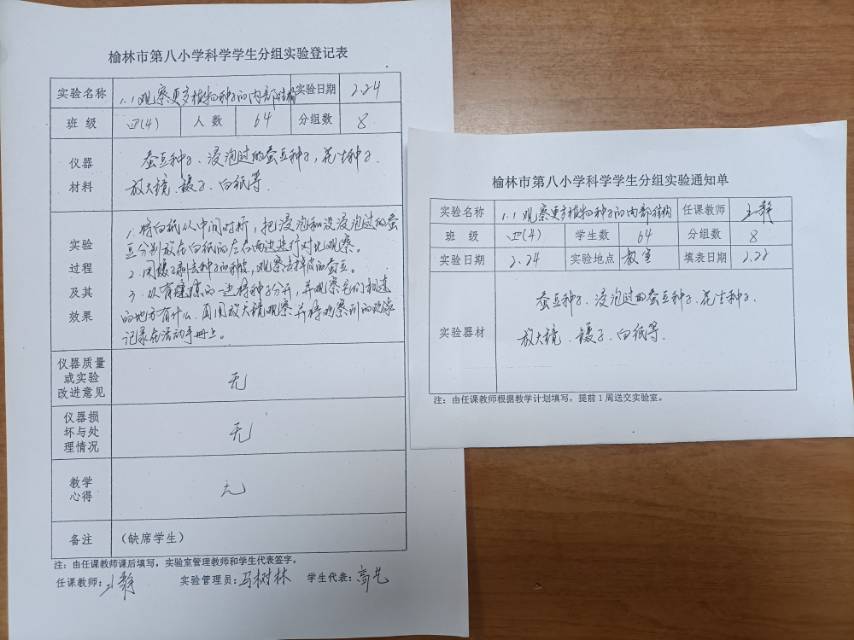 榆林市第八小学科学学生分组实验登记表
实验名称 1.1观察更多植物种子的内部结构 实验日期 2.24
班 级 四(4) 人 数 64 分组数 8
仪器
材料
蚕豆种子、浸泡过的蚕豆种子,花生种子
放大镜、镊子、白纸等.
实验
过程
及其
效果
1.将白纸从中间对折,把浸泡和没浸泡过的蚕
豆分别放在白纸的左右两边进行对比观察。
2.用镊子剥去种子的种皮,观察去掉皮的蚕豆。
3.从有缝隙的一边将种子分开,并观察它们相连
的地方有什么.再用放大镜观察并将观察到的现象
记录在活动手册上。
仪器质量
或实验
改进意见
无
仪器损
坏与处
理情况
无
教学
心得
无
备注 (缺席学生)
注:由任课教师课后填写,实验室管理教师和学生代表签字。
任课教师: 王静 实验管理员:马树林 学生代表:
榆林市第八小学科学学生分组实验通知单
实验名称 1.1观察更多植物种子的内部结构 任课教师 王静
班 级 四(4) 学生数 64 分组数 8
实验日期 2.24 实验地点 教室 填表日期 2.22
实验器材
蚕豆种子、浸泡过的蚕豆种子、花生种子、
放大镜、镊子、白纸等.
注:由任课教师根据教学计划填写,提前1周送交实验室。